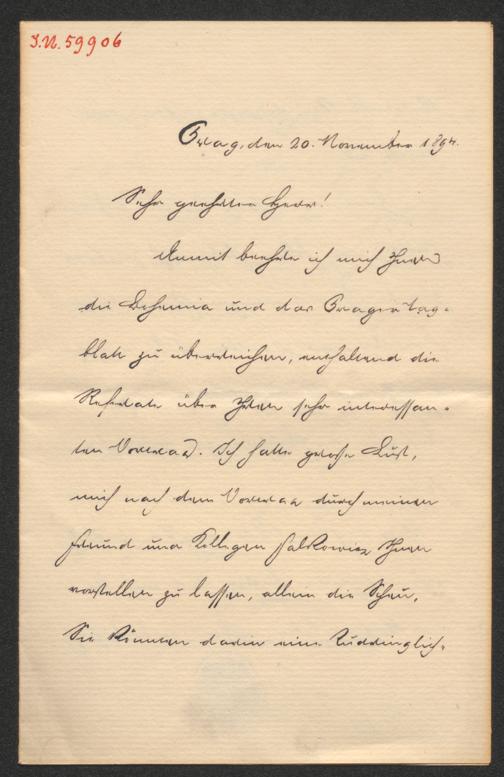 J.N. 59906
Prag, den 20. November 1894.
Sehr geehrter Herr!
Damit beehre ich mich Ihnen
die Bohemia und das Prager Tag-
blatt zu überreichen, enthaltend die
Referate über Ihren sehr interessan-
ten Vortrag. Ich hatte große Lust,
mich nach dem Vortrag durch meinen
Freund und Kollegen Salkowicz Ihnen
vorstellen zu lassen, allein die Scheu,
Sie könnten darin eine Zudringlich-